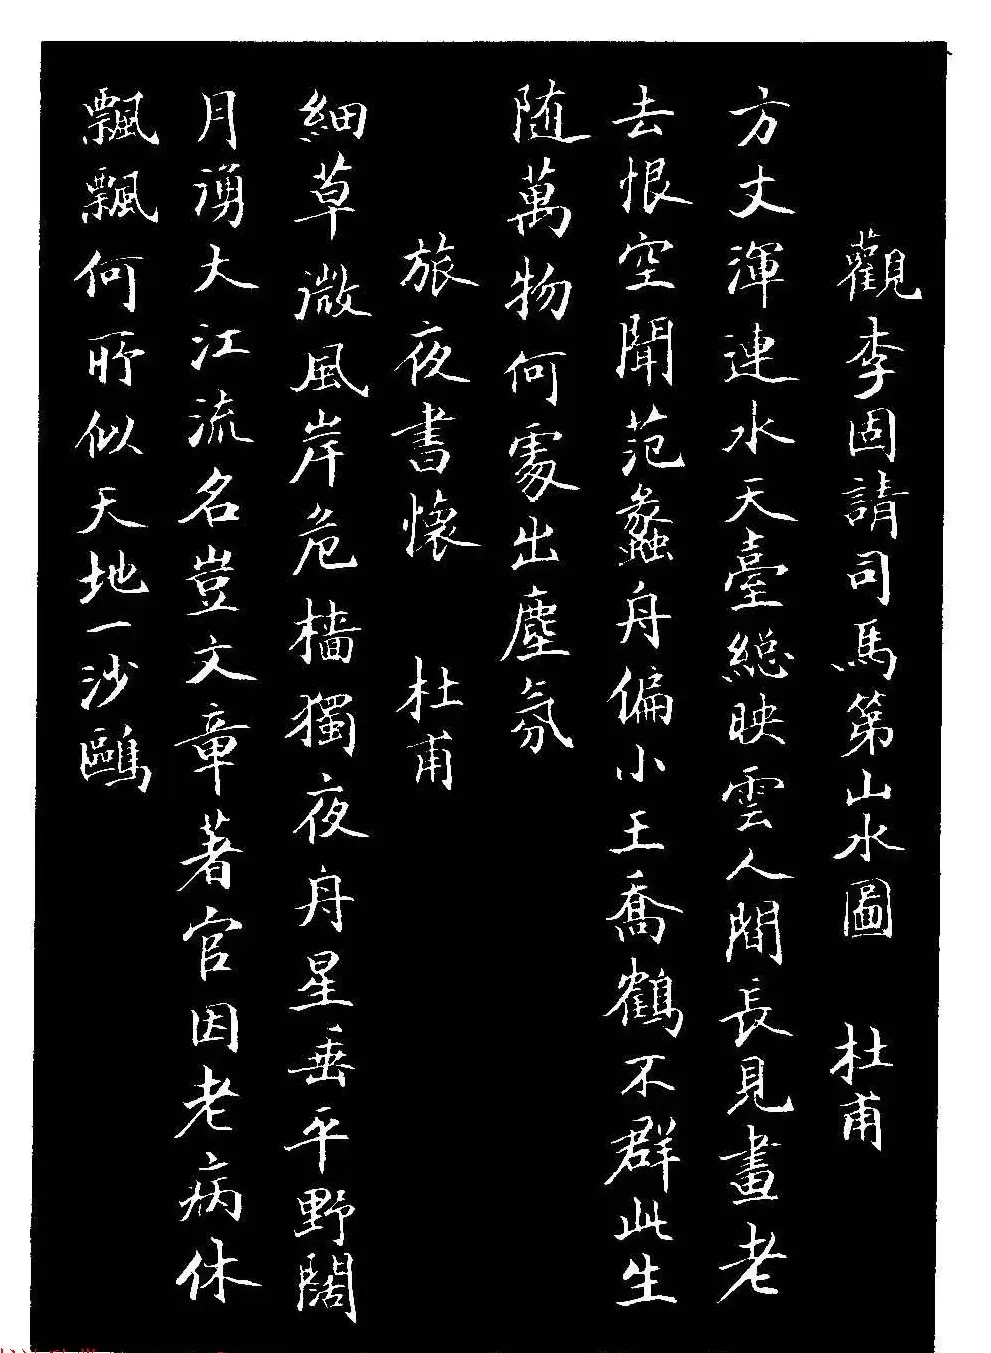 觀李固請司馬第山水圖 杜甫
方丈渾連水天臺總映雲人間長見畫老
去恨空聞范蠡舟偏小王喬鶴不群此生
随萬物何處出塵氛
旅夜書懷 杜甫
細草微風岸危檣獨夜舟星垂平野闊
月湧大江流名豈文章著官因老病休
飄飄何所似天地一沙鷗